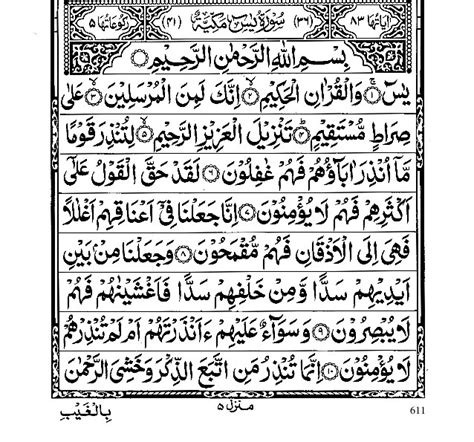 اٰیاتھا ۸۳ (۳۶) سُوْرَةُ یٰسٓ مَكِّیَّةٌ (۴۱) رکوعاتھا ۵
بِسْمِ اللّٰهِ الرَّحْمٰنِ الرَّحِیْمِ
یٰسٓ ۝۱ وَالْقُرْاٰنِ الْحَكِیْمِ ۝۲ اِنَّكَ لَمِنَ الْمُرْسَلِیْنَ ۝۳ عَلٰی
صِرَاطٍ مُّسْتَقِیْمٍ ۝۴ تَنْزِیْلَ الْعَزِیْزِ الرَّحِیْمِ ۝۵ لِتُنْذِرَ قَوْمًا
مَّاۤ اُنْذِرَ اٰبَآؤُهُمْ فَهُمْ غٰفِلُوْنَ ۝۶ لَقَدْ حَقَّ الْقَوْلُ عَلٰۤی
اَكْثَرِهِمْ فَهُمْ لَا یُؤْمِنُوْنَ ۝۷ اِنَّا جَعَلْنَا فِیْۤ اَعْنَاقِهِمْ اَغْلٰلًا
فَهِیَ اِلَی الْاَذْقَانِ فَهُمْ مُّقْمَحُوْنَ ۝۸ وَجَعَلْنَا مِنْۢ بَیْنِ
اَیْدِیْهِمْ سَدًّا وَّمِنْ خَلْفِهِمْ سَدًّا فَاَغْشَیْنٰهُمْ فَهُمْ
لَا یُبْصِرُوْنَ ۝۹ وَسَوَآءٌ عَلَیْهِمْ ءَاَنْذَرْتَهُمْ اَمْ لَمْ تُنْذِرْهُمْ
لَا یُؤْمِنُوْنَ ۝۱۰ اِنَّمَا تُنْذِرُ مَنِ اتَّبَعَ الذِّكْرَ وَخَشِیَ الرَّحْمٰنَ
بِالْغَیْبِ منزل ۵ 611